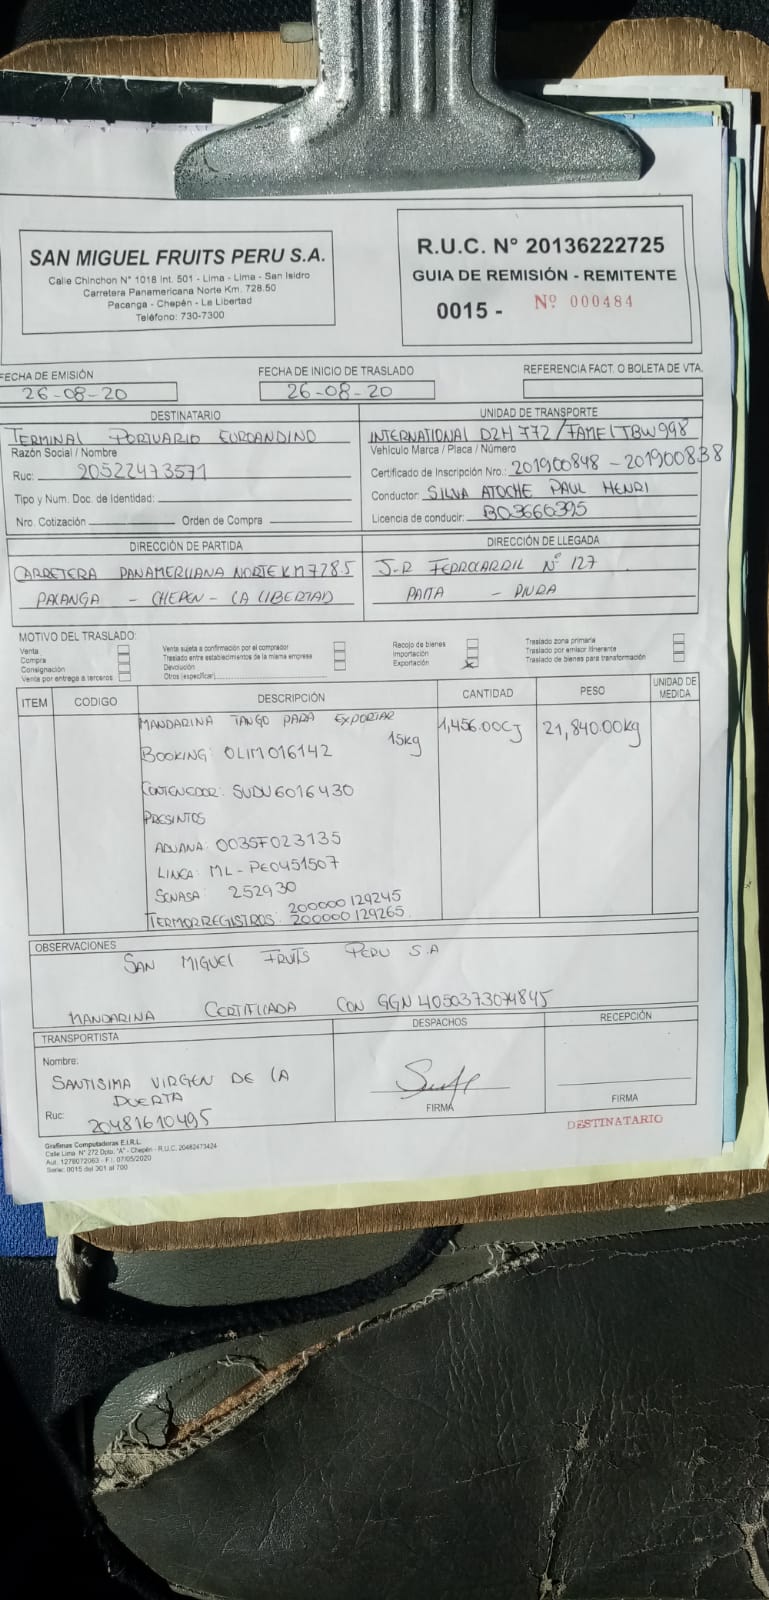 SAN MIGUEL FRUITS PERU S.A.
Calle Chinchon N° 1018 Int. 501 - Lima - Lima - San Isidro
Carretera Panamericana Norte Km. 728.50
Pacanga - Chepén - La Libertad
Teléfono: 730-7300
R.U.C. N° 20136222725
GUIA DE REMISIÓN - REMITENTE
0015 - Nº 000484
FECHA DE EMISIÓN
26-08-20
FECHA DE INICIO DE TRASLADO
26-08-20
REFERENCIA FACT. O BOLETA DE VTA.
DESTINATARIO
TERMINAL PORTUARIO EUROANDINO
Razón Social / Nombre
Ruc: 20522473571
Tipo y Num. Doc. de Identidad:
Nro. Cotización Orden de Compra
UNIDAD DE TRANSPORTE
INTERNATIONAL D2H 772 / FAME / TBW998
Vehículo Marca / Placa / Número
Certificado de Inscripción Nro.: 201900848 - 201900838
Conductor: SILVA ATOCHE PAUL HENRI
Licencia de conducir: B03660395
DIRECCIÓN DE PARTIDA
CARRETERA PANAMERICANA NORTE KM 728.5
PACANGA - CHEPEN - LA LIBERTAD
DIRECCIÓN DE LLEGADA
J-R FERROCARRIL Nº 127
PAITA - PIURA
MOTIVO DEL TRASLADO:
Venta
Compra
Consignación
Venta por entrega a terceros
Venta sujeta a confirmación por el comprador
Traslado entre establecimientos de la misma empresa
Devolución
Otros (especificar)
Recojo de bienes
Importación
Exportación X
Traslado zona primaria
Traslado por emisor itinerante
Traslado de bienes para transformación
ITEM CODIGO DESCRIPCIÓN CANTIDAD PESO UNIDAD DE MEDIDA
MANDARINA TANGO PARA EXPORTAR 1,456.00CJ 21,840.00kg
15kg
BOOKING: OLIM016142
CONTENEDOR: SUDU6016430
PRESINTOS
ADUANA: 0035F023135
LINEA: ML-PE0451507
SENASA: 252930
TERMORREGISTROS: 200000129245
200000129265.
OBSERVACIONES
SAN MIGUEL FRUITS PERU S.A
MANDARINA CERTIFICADA CON GGN 4050373074845
TRANSPORTISTA
Nombre:
SANTISIMA VIRGEN DE LA
PUERTA
Ruc: 20481610495
DESPACHOS
FIRMA
RECEPCIÓN
FIRMA
DESTINATARIO
Grafimas Computadoras E.I.R.L.
Calle Lima N° 272 Dpto. "A" - Chepén - R.U.C. 20482473424
Aut. 1278072063 - F.I. 07/05/2020
Serie: 0015 del 301 al 700